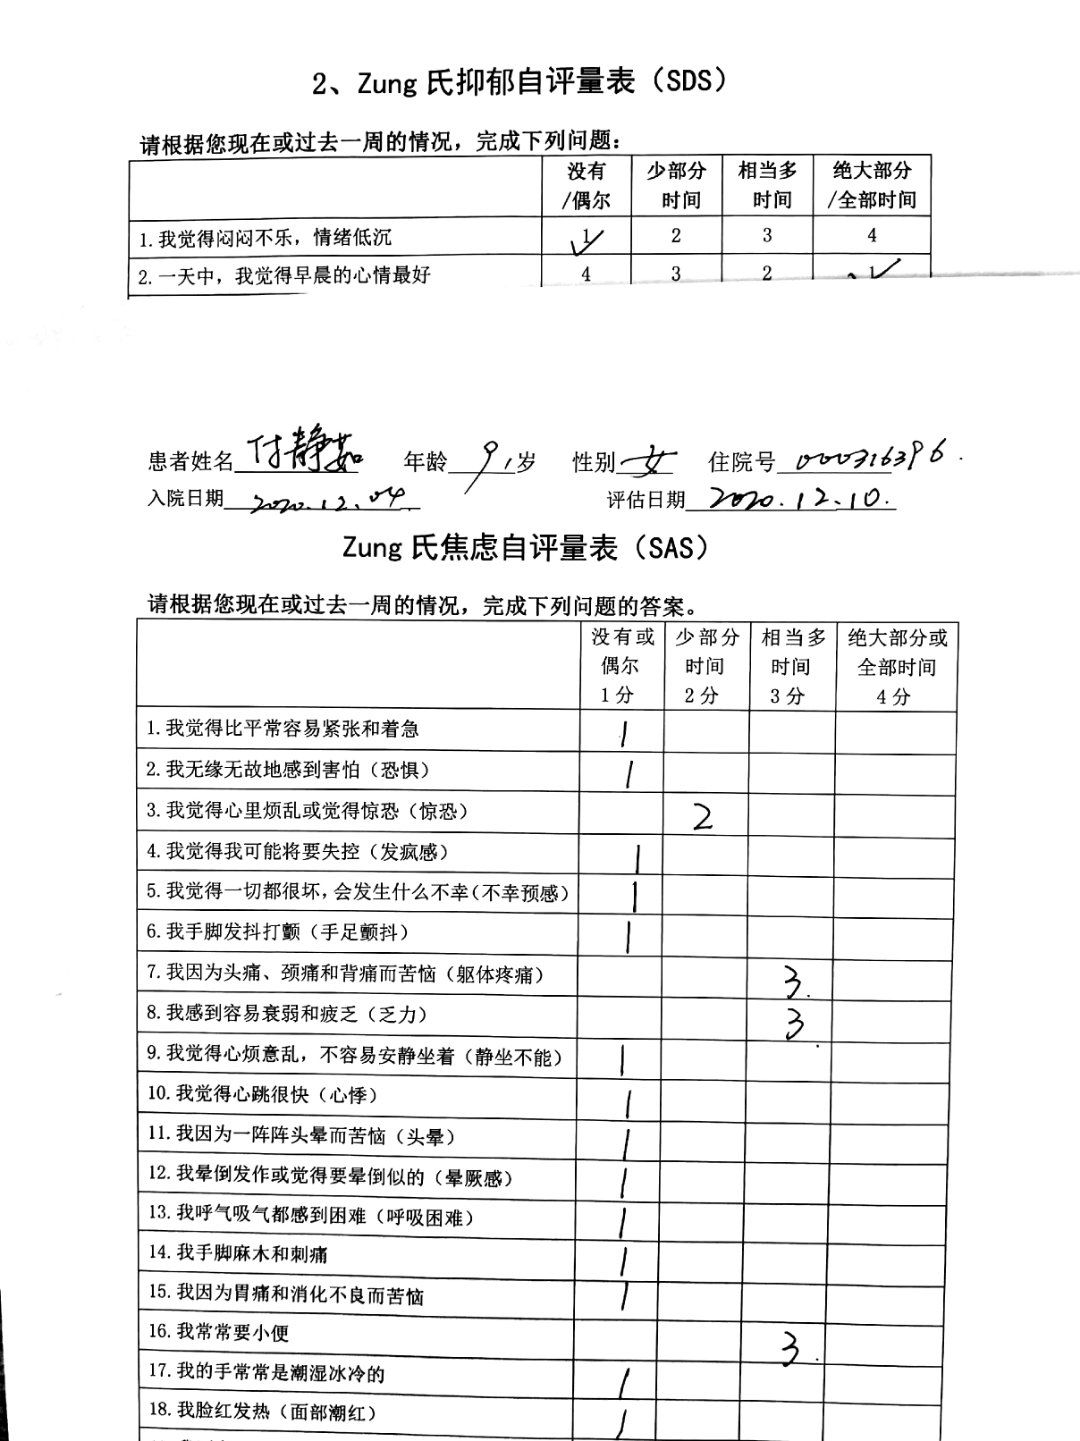 2、Zung 氏抑郁自评量表（SDS）
请根据您现在或过去一周的情况，完成下列问题：
没有/偶尔 少部分时间 相当多时间 绝大部分/全部时间
1.我觉得闷闷不乐，情绪低沉 1 ✓ 2 3 4
2.一天中，我觉得早晨的心情最好 4 3 2 1 ✓
患者姓名 付静茹 年龄 91 岁 性别 女 住院号 000316396.
入院日期 2020.12.04 评估日期 2020.12.10.
Zung 氏焦虑自评量表（SAS）
请根据您现在或过去一周的情况，完成下列问题的答案。
没有或偶尔 1分 少部分时间 2分 相当多时间 3分 绝大部分或全部时间 4分
1.我觉得比平常容易紧张和着急 1
2.我无缘无故地感到害怕（恐惧） 1
3.我觉得心里烦乱或觉得惊恐（惊恐） 2
4.我觉得我可能将要失控（发疯感） 1
5.我觉得一切都很坏，会发生什么不幸（不幸预感） 1
6.我手脚发抖打颤（手足颤抖） 1
7.我因为头痛、颈痛和背痛而苦恼（躯体疼痛） 3.
8.我感到容易衰弱和疲乏（乏力） 3
9.我觉得心烦意乱，不容易安静坐着（静坐不能） 1
10.我觉得心跳很快（心悸） 1
11.我因为一阵阵头晕而苦恼（头晕） 1
12.我晕倒发作或觉得要晕倒似的（晕厥感） 1
13.我呼气吸气都感到困难（呼吸困难） 1
14.我手脚麻木和刺痛 1
15.我因为胃痛和消化不良而苦恼 1
16.我常常要小便 3.
17.我的手常常是潮湿冰冷的 1
18.我脸红发热（面部潮红） 1